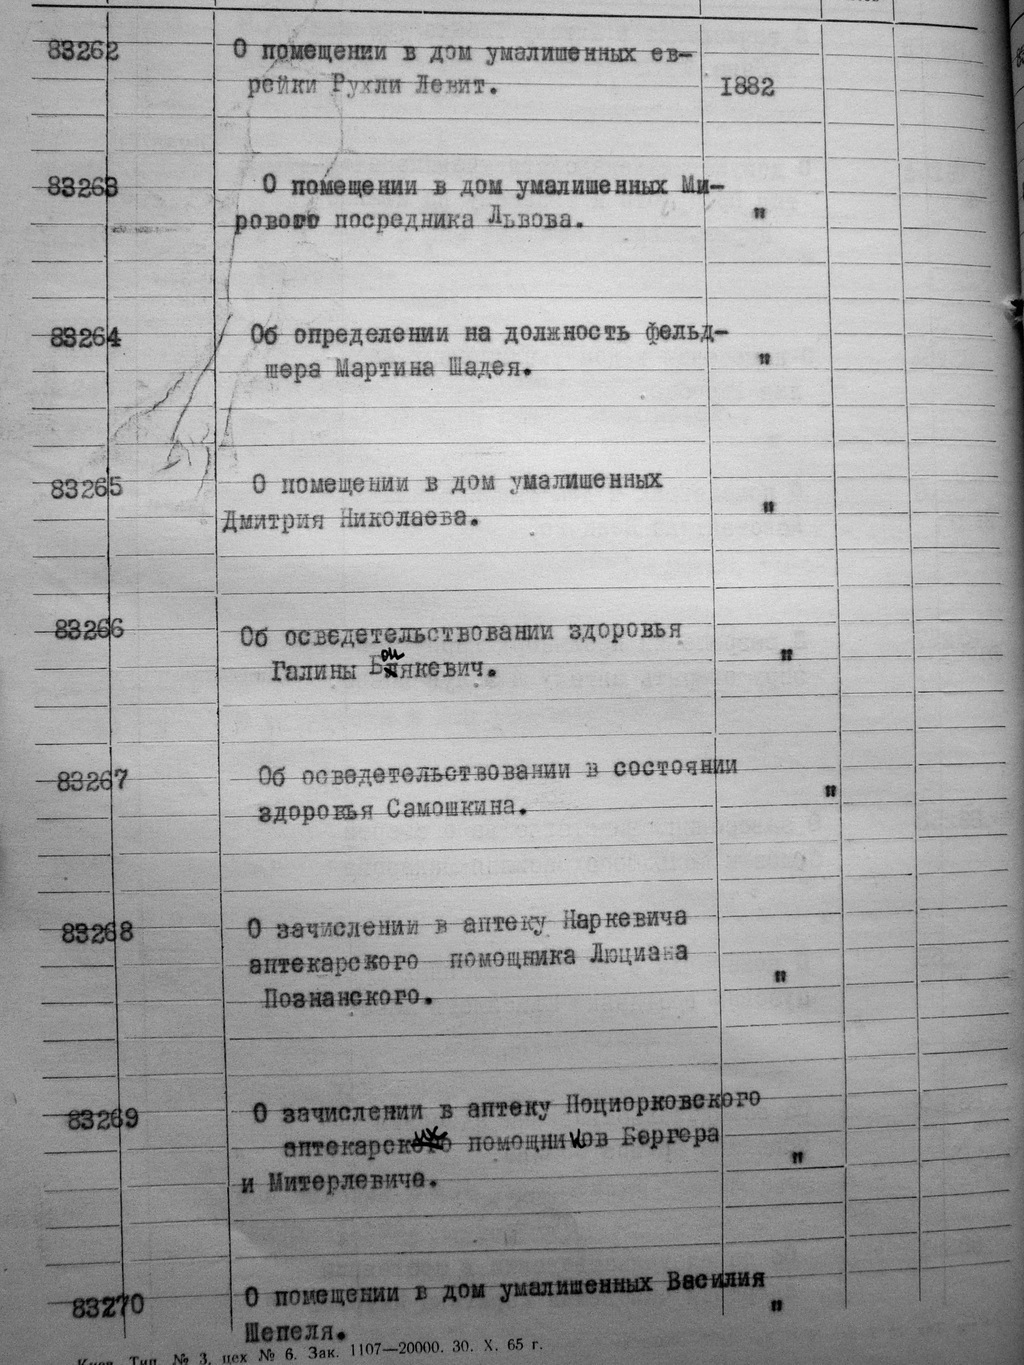 83262 О помещении в дом умалишенных ев-
рейки Рухли Левит. 1882
83263 О помещении в дом умалишенных Ми-
рового посредника Львова. "
83264 Об определении на должность фельд-
шера Мартина Шадея. "
83265 О помещении в дом умалишенных
Дмитрия Николаева. "
83266 Об осведетельствовании здоровья
Галины Бонякевич. "
83267 Об осведетельствовании в состоянии
здоровья Самошкина. "
83268 О зачислении в аптеку Наркевича
аптекарского помощника Люциана
Познанского. "
83269 О зачислении в аптеку Поциорковского
аптекарских помощников Бергера
и Митерлевича. "
83270 О помещении в дом умалишенных Василия
Шепеля. "
Киев. Тип. № 3, цех № 6. Зак. 1107—20000. 30. X. 65 г.